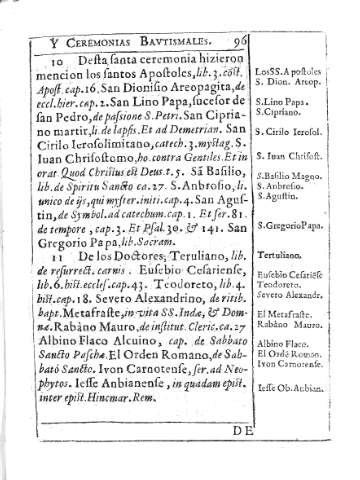 Y CEREMONIAS BAVTISMALES. 96
10 Desta santa ceremonia hizieron
mencion los santos Apostoles, lib. 3. cōst.
Apost. cap. 16. San Dionisio Areopagita, de
eccl. hier. cap. 2. San Lino Papa, sucesor de
san Pedro, de passione S. Petri. San Cipria-
no martir, li. de lapsis. Et ad Demetrian. San
Cirilo Ierosolimitano, catech. 3. mystag. S.
Iuan Chrisostomo, ho. contra Gentiles. Et in
orat. Quod Christus est Deus t. 5. Sā Basilio,
lib. de Spiritu Sancto ca. 27. S. Anbrosio, li.
unico de ijs, qui myster. initi. cap. 4. San Agus-
tin, de Symbol. ad catechum. cap. 1. Et ser. 81.
de tempore, cap. 3. Et Psal. 30. & 141. San
Gregorio Papa, lib. Sacram.
11 De los Doctores; Teruliano, lib.
de resurrect. carnis. Eusebio Cesariense,
lib. 6. hist. eccles. cap. 43. Teodoreto, lib. 4.
hist. cap. 18. Severo Alexandrino, de ritib.
bapt. Metafraste, in vita SS. Indæ, & Dom-
næ. Rabàno Mauro, de institut. Cleric. ca. 27
Albino Flaco Alcuino, cap. de Sabbato
Sancto Paschæ. El Orden Romano, de Sab-
bato Sancto. Ivon Carnotense, ser. ad Neo-
phytos. Iesse Anbianense, in quadam epist.
inter epist. Hincmar. Rem.
DE
Los SS. Apostoles
S. Dion. Areop.
S. Lino Papa.
S. Cipriano.
S. Cirilo Ierosol.
S. Iuan Chrisost.
S. Basilio Magno.
S. Anbrosio.
S. Agustin.
S. Gregorio Papa.
Tertuliano.
Eusebio Cesariēse
Teodoreto.
Severo Alexandr.
El Metafraste.
Rabàno Mauro.
Albino Flaco.
El Ordē Roman.
Ivon Carnotense.
Iesse Ob. Anbian.